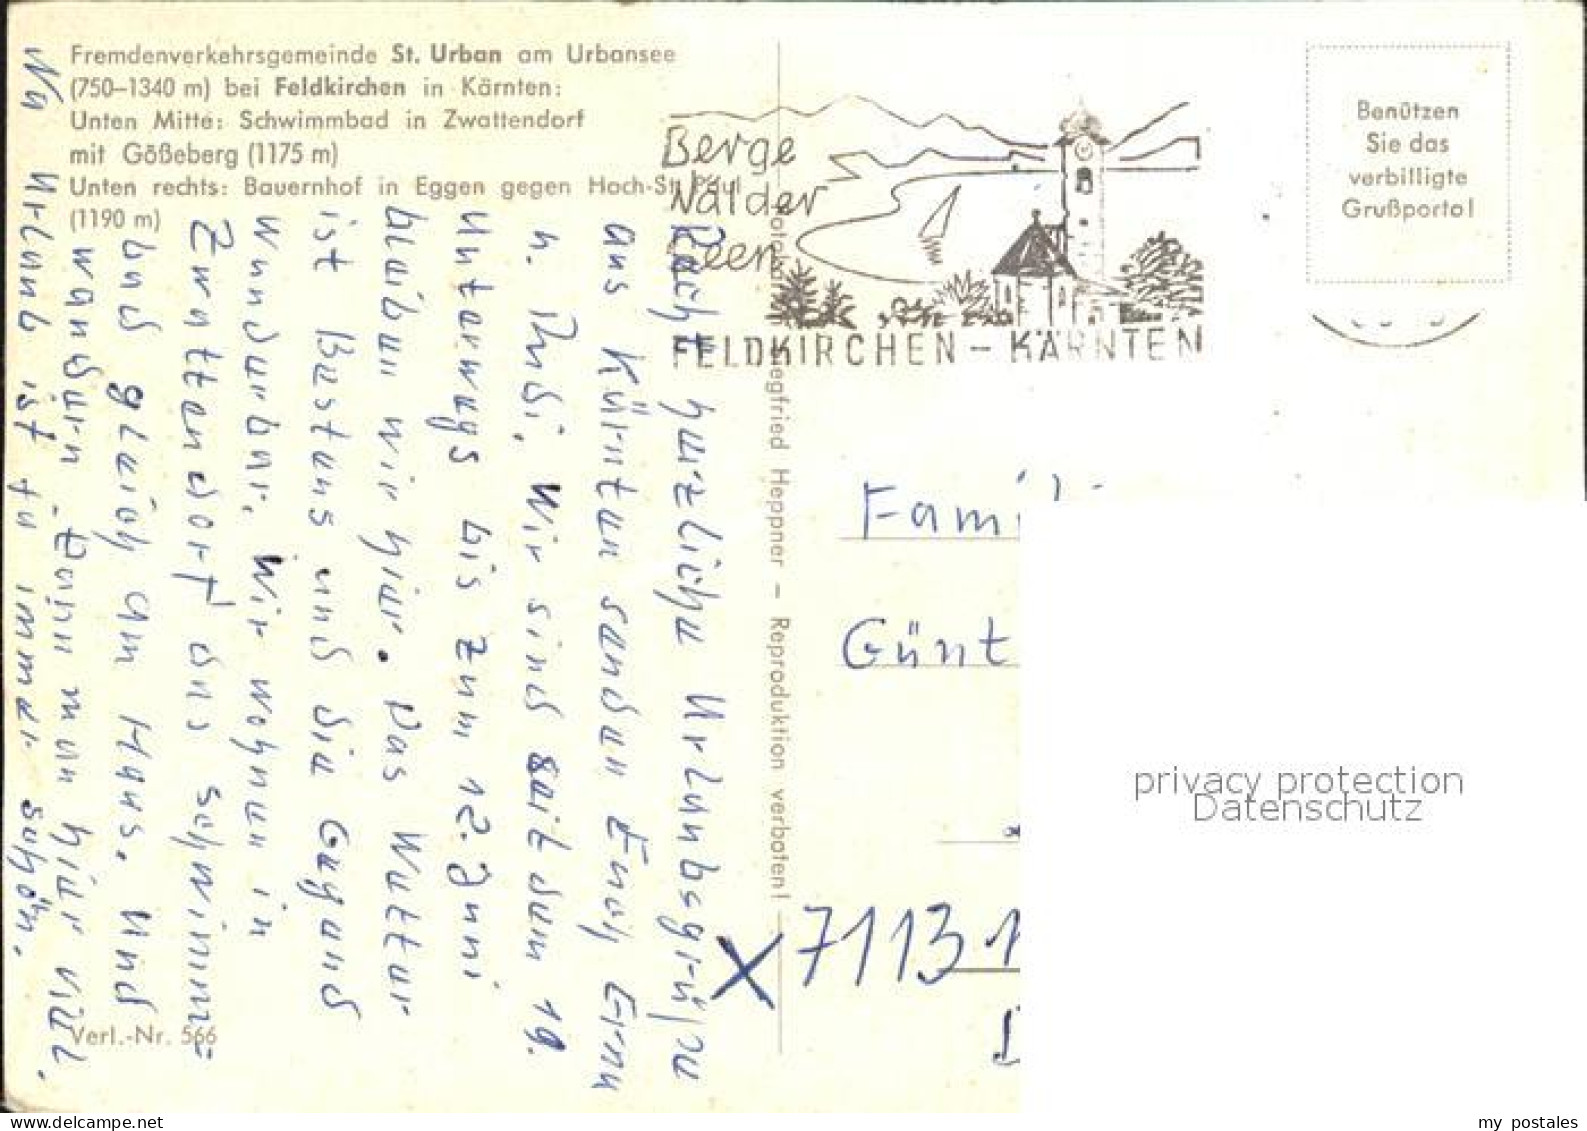 Fremdenverkehrsgemeinde St. Urban am Urbansee
(750–1340 m) bei Feldkirchen in Kärnten:
Unten Mitte: Schwimmbad in Zwattendorf
mit Gößeberg (1175 m)
Unten rechts: Bauernhof in Eggen gegen Hoch-St. Paul
(1190 m)
Berge
Wälder
Seen
FELDKIRCHEN – KÄRNTEN
Benützen
Sie das
verbilligte
Grußporto!
Recht herzliche Urlaubsgrüße
aus Kärnten senden Euch Erna
u. Rudi. Wir sind seit dem 19.
unterwegs bis zum 12. Juni
bleiben wir hier. Das Wetter
ist bestens und die Gegend
wunderbar. Wir wohnen in
Zwattendorf das Schwimm=
bad gleich am Haus. Und
wandern kann man hier viel.
Na Urlaub ist ja immer schön.
Siegfried Heppner – Reproduktion verboten!
Fami
Günt
X 7113 1
privacy protection
Datenschutz
Verl.-Nr. 566
www.delcampe.net
my postales